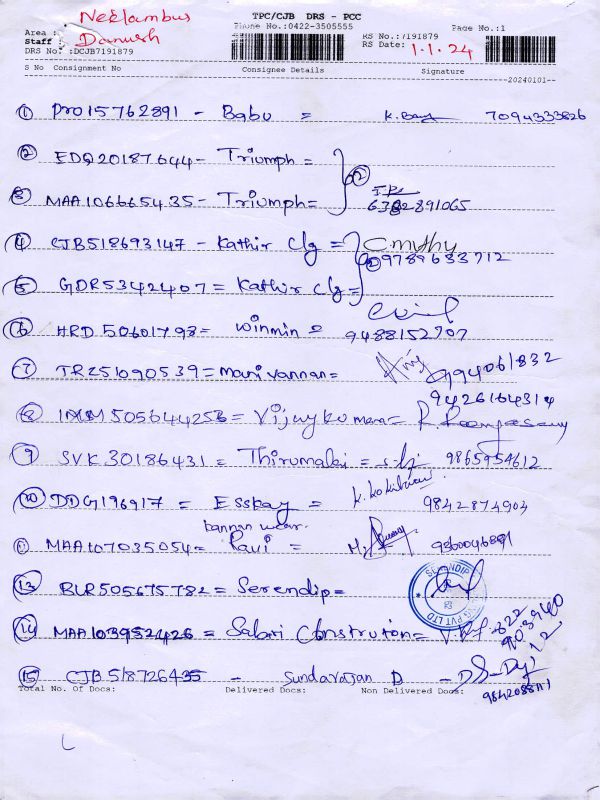 Neelambus
TPC/CJB DRS - PCC
Phone No.:0422-3505555
Page No.:1
Area :
Staff : Danush
DRS No. :DCJB7191879
RS No.:7191879
RS Date: 1.1.24
S No Consignment No Consignee Details Signature
20240101
1 PRO15762891 - Babu = 7094333826
2 EDQ20187644 - Triumph =
3 MAA1066665435 - Triumph = 6382891065
4 CJB518693147 - Kathir Clg = Cmythy
9789633712
5 GDR5342407 = Kathir Clg =
6 HRD50601798 = Winmin =
9488152707
7 TRZ51090539 = Manivannan = 9994061832
9426164314
8 IMM505644253 = Vijaykumara = R. Rangasamy
9 SVK30186431 = Thirumalai = 9865954612
10 DDG196917 = Esskay = K. Kokilavani 9842874903
bannan wear
11 MAA107035054 = Ravi =
13 BLR505675782 = Serendip =
SERENDIP
PVT LTD
14 MAA103952426 = Sabari Constrution =
15 CJB518726435 - Sundararajan D -
Total No. Of Docs: Delivered Docs: Non Delivered Docs: